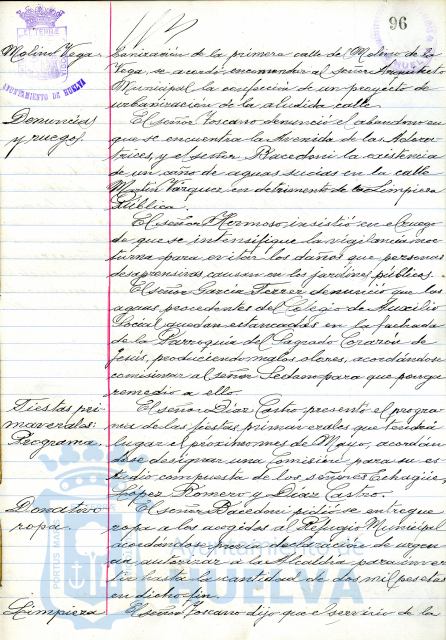 96
AYUNTAMIENTO DE HUELVA
Molino Vega.
banización de la primera calle del Molino de la
Vega, se acordó encomendar al señor Arquitecto
Municipal la confección de un proyecto de
urbanización de la aludida calle.
Denuncias
y ruegos.
El señor Toscano denunció el abandono en
que se encuentra la Avenida de las Adora-
trices, y el señor Placedoni la existencia
de un caño de aguas sucias en la calle
Martín Vázquez, en detrimento de la Limpieza
Pública.
El señor Hermoso, insistió en el ruego
de que se intensifique la vigilancia noc-
turna para evitar los daños que personas
desaprensivas causan en los jardines públicos.
El señor García Ferrer denunció que las
aguas procedentes del Colegio de Auxilio
Social quedan estancadas en la fachada
de la Parroquia del Sagrado Corazón de
Jesús, produciendo malos olores, acordándose
comisionar al señor Sedam para que ponga
remedio a ello.
Fiestas pri-
maverales:
Programa.
El señor Díaz Castro presentó el progra-
ma de las fiestas primaverales que tendrán
lugar el próximo mes de Mayo, acordán-
dose designar una Comisión para su es-
tudio compuesta de los señores Echagüe,
López Romero y Díaz Castro.
Donativo
ropa.
El señor Placedoni pidió se entregue
ropa a los acogidos al Refugio Municipal
acordándose, previa declaración de urgen-
cia, autorizar a la Alcaldía para inver-
tir hasta la cantidad de dos mil pesetas
en dicho fin.
Limpieza
El señor Toscano dijo que el servicio de la
Ayuntamiento de
HUELVA